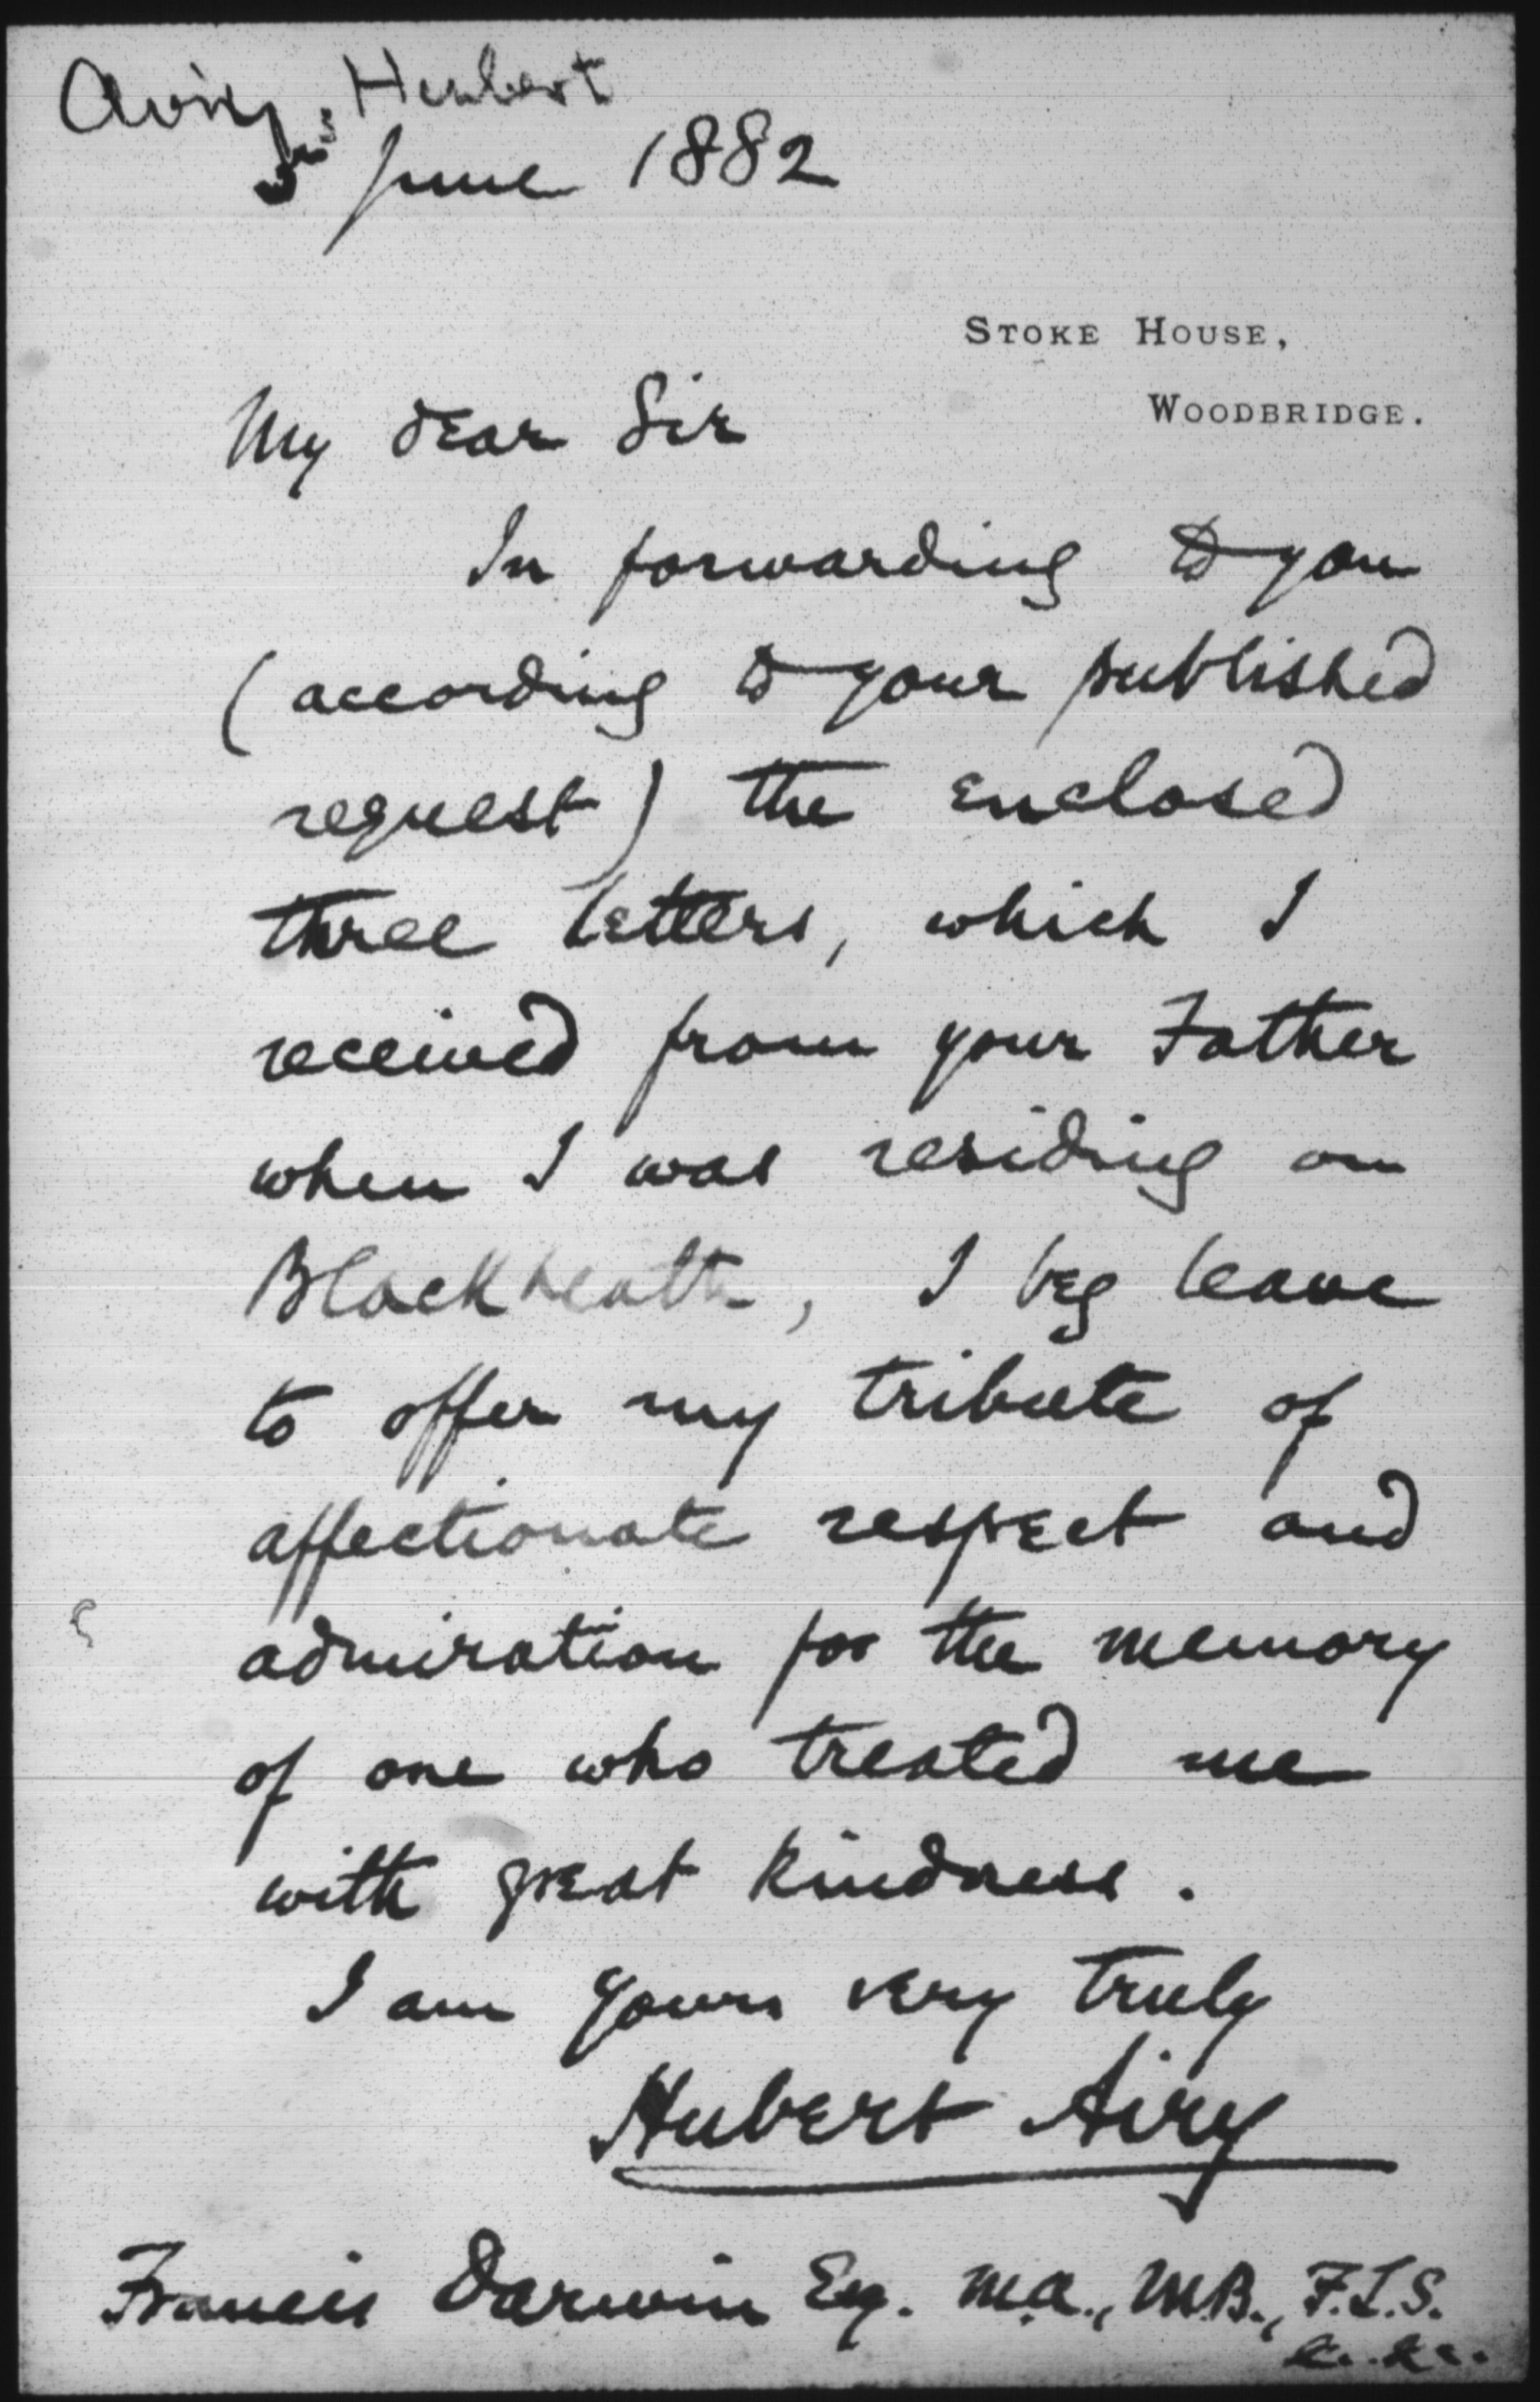 Airy, Herbert
June 1882
STOKE HOUSE,
WOODBRIDGE.
My dear Sir
In forwarding to you
(according to your published
request) the enclosed
three letters, which I
received from your Father
when I was residing on
Blackheath, I beg leave
to offer my tribute of
affectionate respect and
admiration for the memory
of one who treated me
with great kindness.
I am yours very truly
Hubert Airy
Francis Darwin Esq. M.A., M.B., F.L.S.
&c. &c.